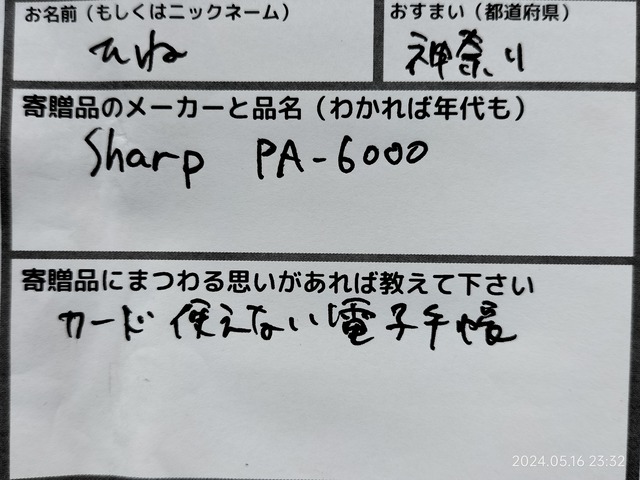 お名前（もしくはニックネーム）
ひね
おすまい（都道府県）
神奈川
寄贈品のメーカーと品名（わかれば年代も）
Sharp PA-6000
寄贈品にまつわる思いがあれば教えて下さい
カード使えない電子手帳
2024.05.16 23:32